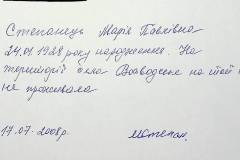 Степанець Марія Павлівна
24.01.1928 року народження. На
території села Воєводське на той час
не проживала
17.07.2008р. МСтепан.